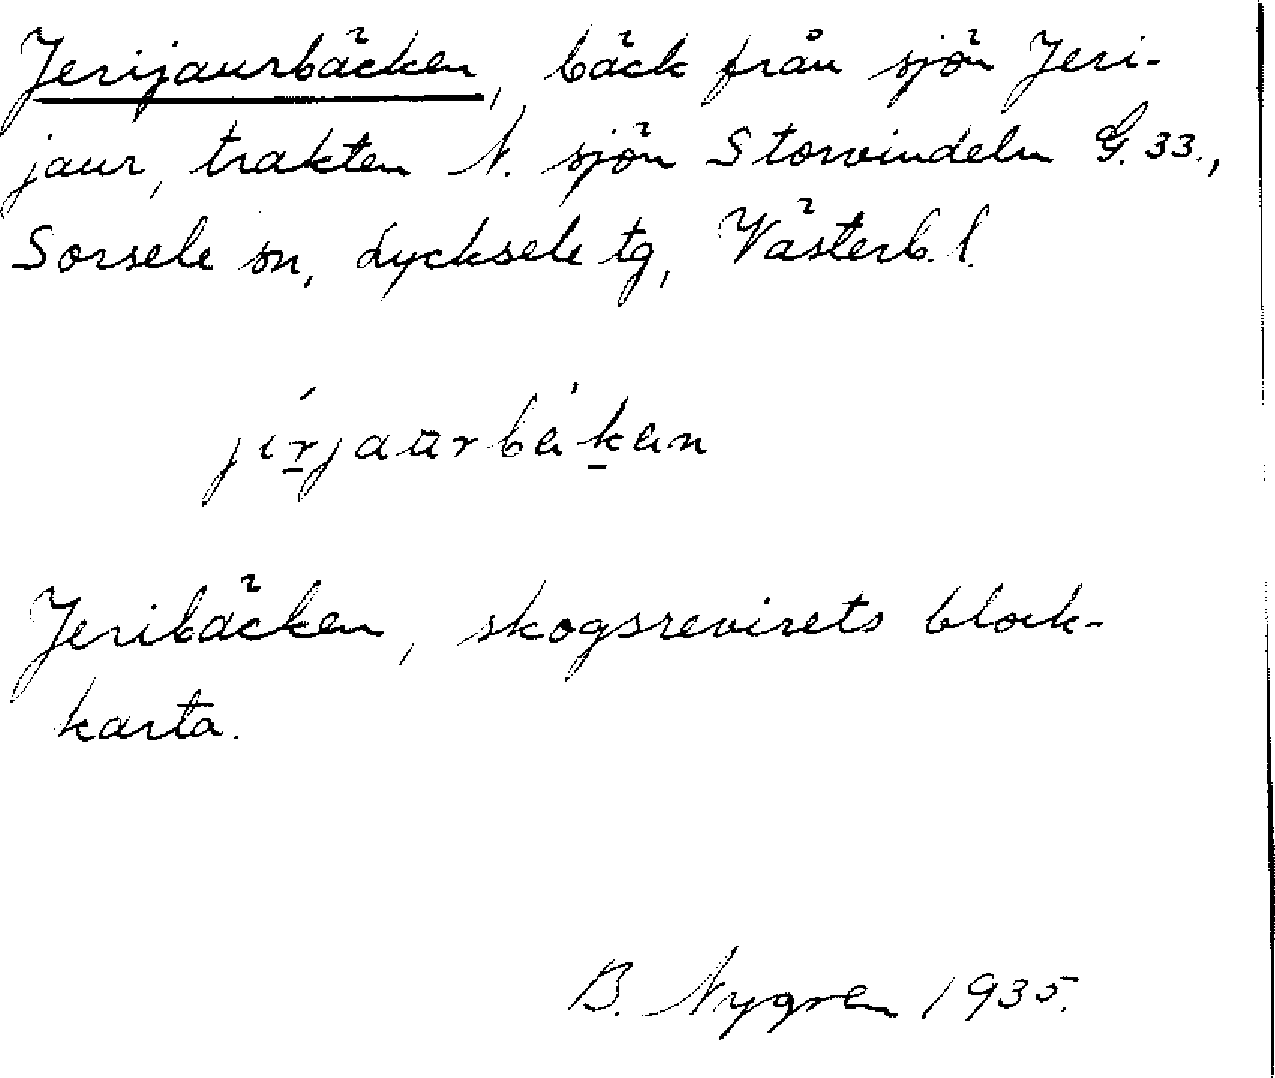 Jerijaurbäcken, bäck från sjön Jeri-
jaur, trakten N. sjön Storvindeln G. 33.,
Sorsele sn, Lycksele tg, Västerb. l.
Jeribäcken, skogsrevirets block-
karta.
B. Nygren 1935.